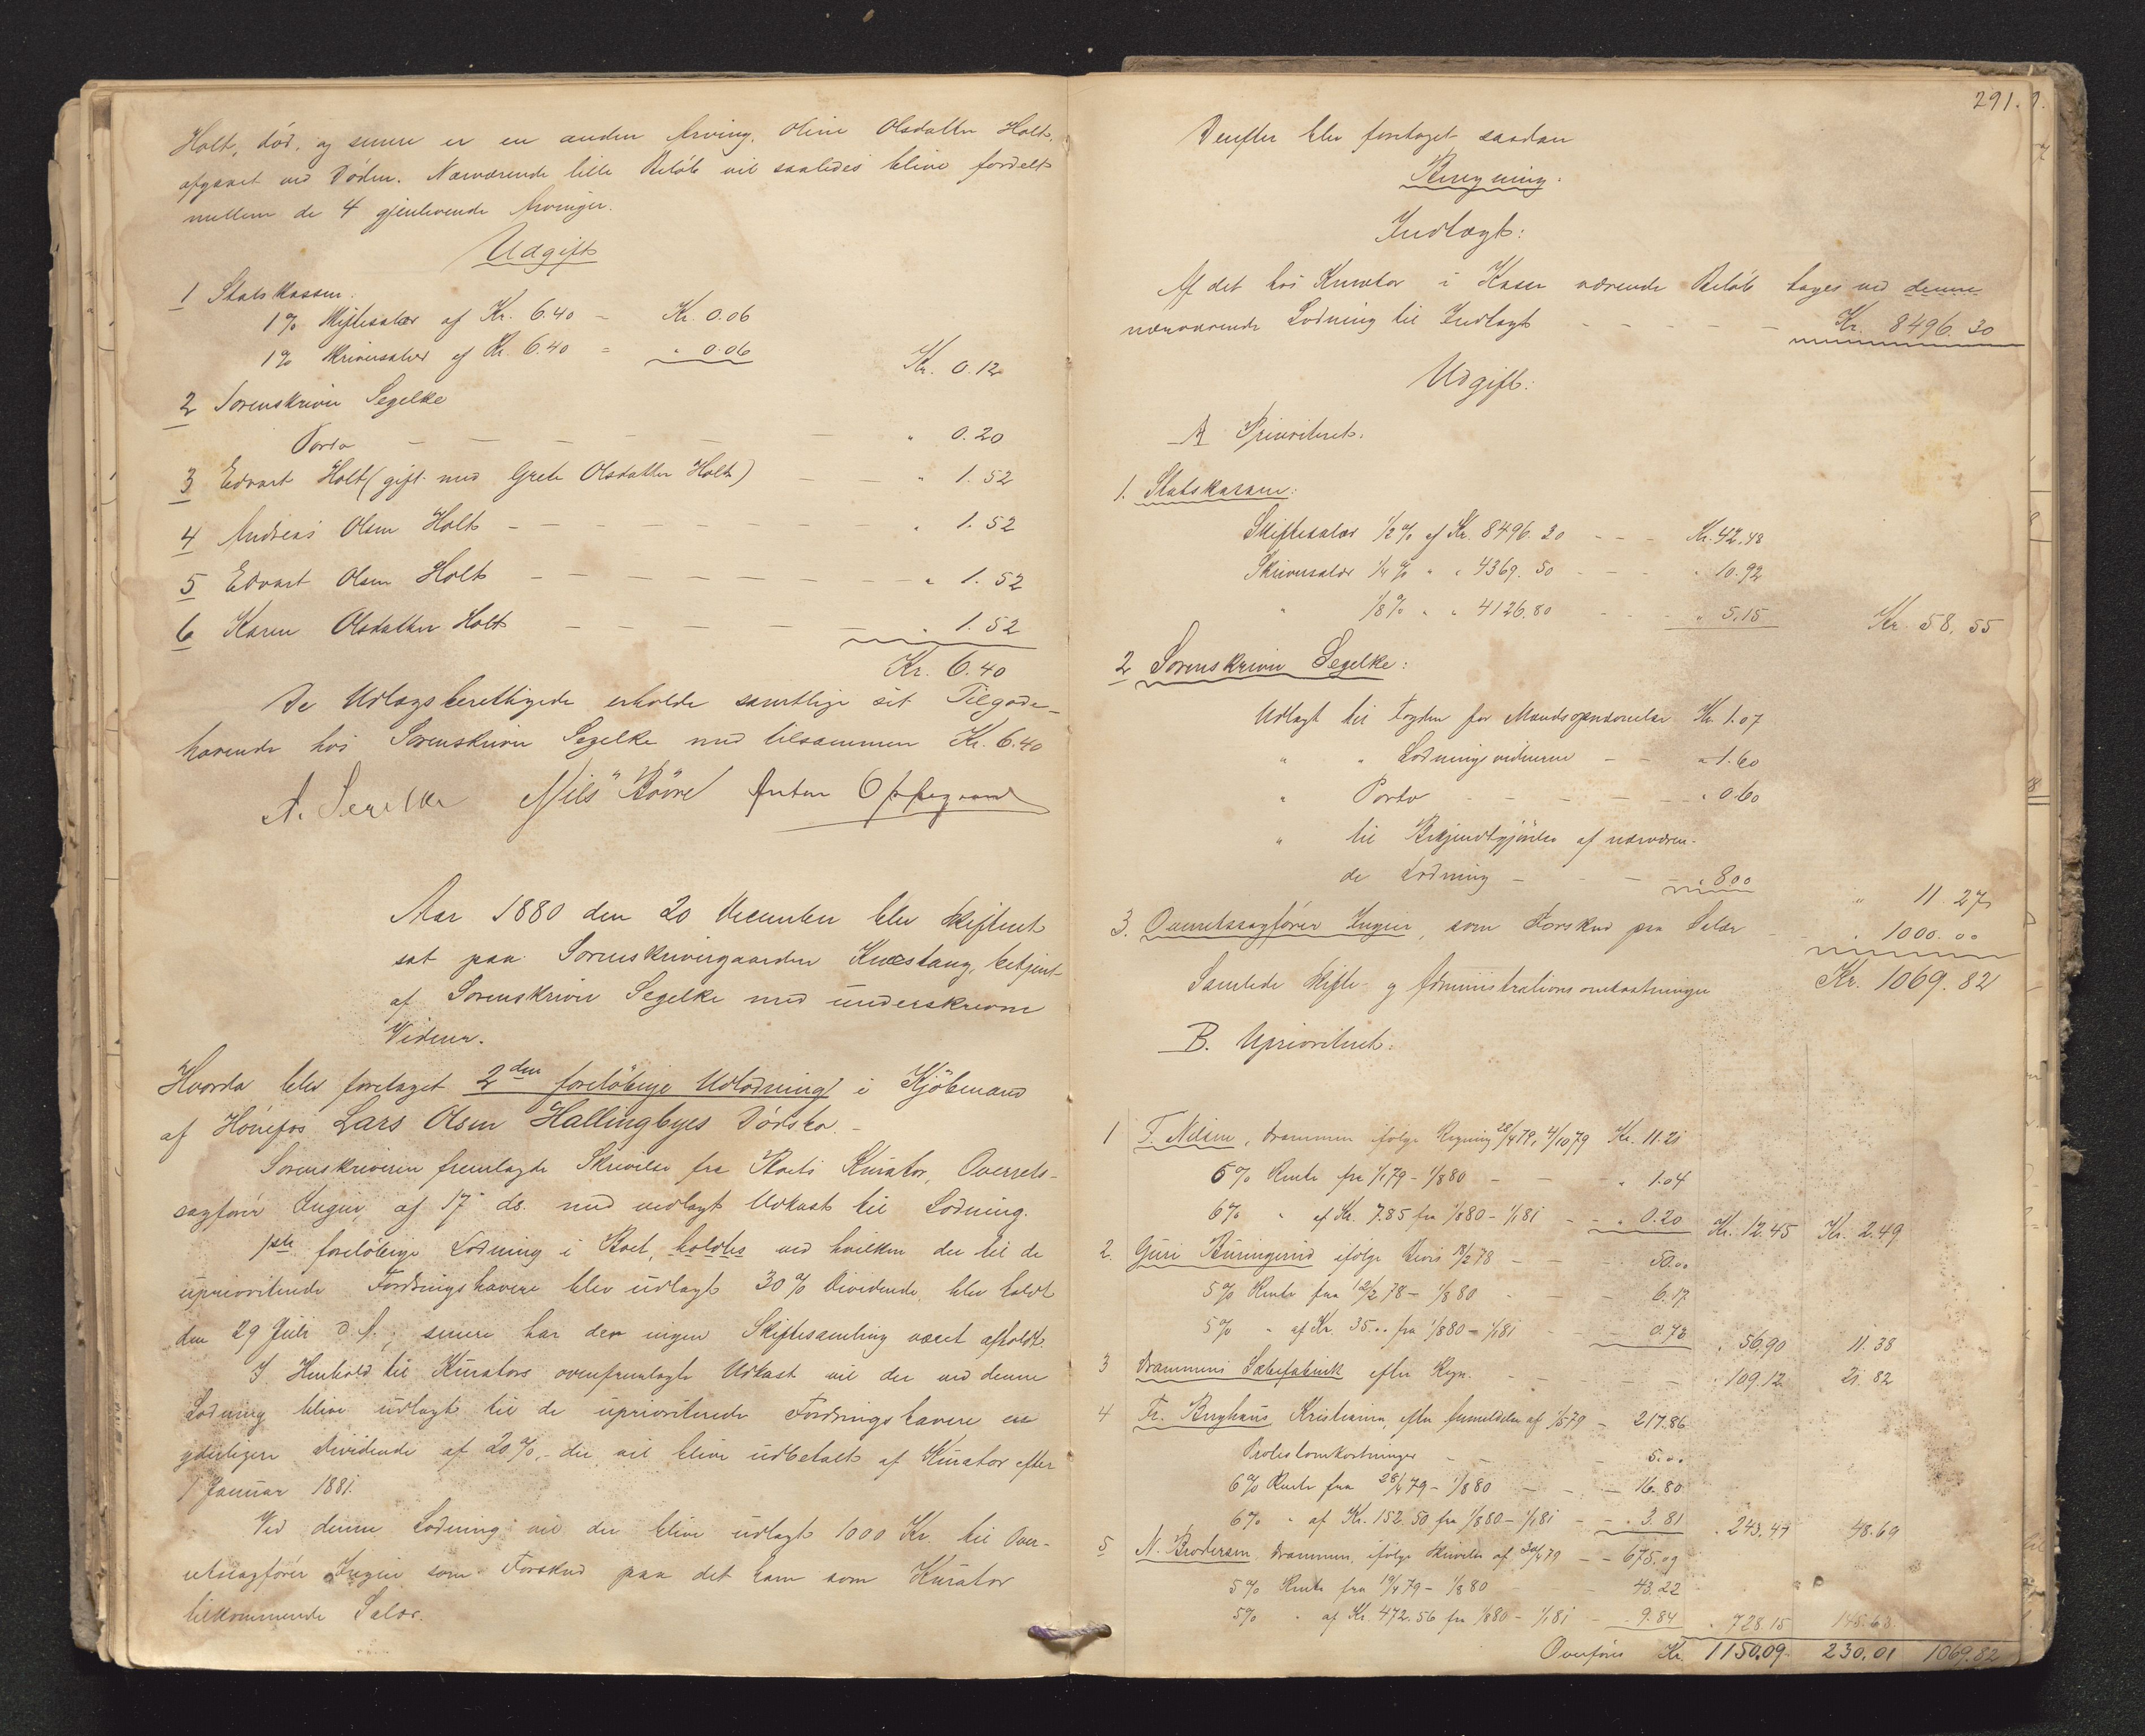 Holt, död, og senere er en anden Arving, Oline Olsdatter Holt,
afgaaet ved Döden. Nærværende lille Belöb vil saaledes blive fordelt
mellem de 4 gjenlevende Arvinger.
Udgift
1 Statskassen:
1% Skiftesalær af Kr. 6.40 = Kr. 0.06
1% Skriversalær af Kr. 6.40 = " 0.06
Kr. 0.12
2 Sorenskriver Segelke
Porto " 0.20
3 Edvart Holt (gift med Grete Olsdatter Holt) " 1.52
4 Andreas Olsen Holt " 1.52
5 Edvart Olsen Holt " 1.52
6 Karen Olsdatter Holt " 1.52
Kr. 6.40
De Udlagsberettigede erholde samtlige sit Tilgode-
havende hos Sorenskriver Segelke med tilsammen Kr. 6.40
A. Segelke Nils Anton Oppegaard
Aar 1880 den 20 December blev Skifteret
sat paa Sorenskrivergaarden Knestang, betjent
af Sorenskriver Segelke med underskrevne
Vidner.
Hvorda blev foretaget 2den foreløbige Udlodning i Kjöbmand
af Hönefos Lars Olsen Hallingbyes Dödsbo.
Sorenskriveren fremlagde Skrivelse fra Boets Kurator, Overrets-
sagförer Ingier, af 17 ds. med vedlagt Udkast til Lodning.
1ste foreløbige Lodning i Boet, holdtes ved hvilken der til de
uprioriterede Fordringshavere blev udlagt 30% Dividende, blev holdt
den 29 Juli d. A.; senere har der ingen Skiftesamling været afholdt.
I Henhold til Kurators ovenfremlagte Udkast vil der ved denne
Lodning blive udlagt til de uprioriterede Fordringshavere en
yderligere Dividende af 20%, der vil blive udbetalt af Kurator efter
1 Januar 1881.
Ved denne Lodning vil der blive udlagt 1000 Kr. til Over-
retssagförer Ingier som Forskud paa det ham som Kurator
tilkommende Salær.
291.
Derefter blev foretaget saadan
Beregning:
Indtægt:
Af det hos Kurator i Kassa værende Belöb tages ved denne
nærværende Lodning til Indtægt Kr. 8496.30
Udgift:
A Prioriteret.
1. Statskassen:
Skiftesalær 1/2% af Kr. 8496.30 Kr. 42.48
Skriversalær 1/4% " " 4369.50 " 10.92
" 1/8% " " 4126.80 " 5.15 Kr. 58.55
2 Sorenskriver Segelke:
Udlagt til Fogden for Mandsopnævnelse Kr. 1.07
" " Lodningsvidnerne " 1.60
" Porto " 0.60
" til Bekjendtgjörelse af nærværen-
de Lodning " 8.00 " 11.27
3. Overretssagförer Ingier, som Forskud paa Salær " 1000.00
Samlede Skifte- og Administrationsomkostninger Kr. 1069.82
B. Uprioriteret:
1 T. Nilsen, Drammen ifölge Regning 28/4 79, 4/10 79 Kr. 11.21
6% Rente fra 1/1 79 - 1/8 80 " 1.04
6% " af Kr. 7.85 fra 1/8 80 - 1/1 81 " 0.20 Kr. 12.45 Kr. 2.49
2. Guri ifölge Bevis 18/2 78 50.00
5% Rente fra 12/2 78 - 1/8 80 6.17
5% " af Kr. 35.00 fra 1/8 80 - 1/1 81 0.73 " 56.90 11.38
3 Drammens Sæbefabrik efter Regn. " 109.12 21.82
4 Fr. Berghaus Kristiania, efter Anmeldelse af 1/5 79 217.86
Protestomkostninger 5.00
6% Rente fra 28/4 79 - 1/8 80 16.80
6% " af Kr. 152.50 fra 1/8 80 - 1/1 81 " 3.81 " 243.47 48.69
5 N. Brodersen Drammen, ifölge Skrivelse af 30/4 79 675.09
5% Rente fra 19/4 79 - 1/8 80 43.22
5% " af Kr. 472.56 fra 1/8 80 - 1/1 81 9.84 " 728.15 145.63
Overföres Kr. 1150.09 230.01 1069.82